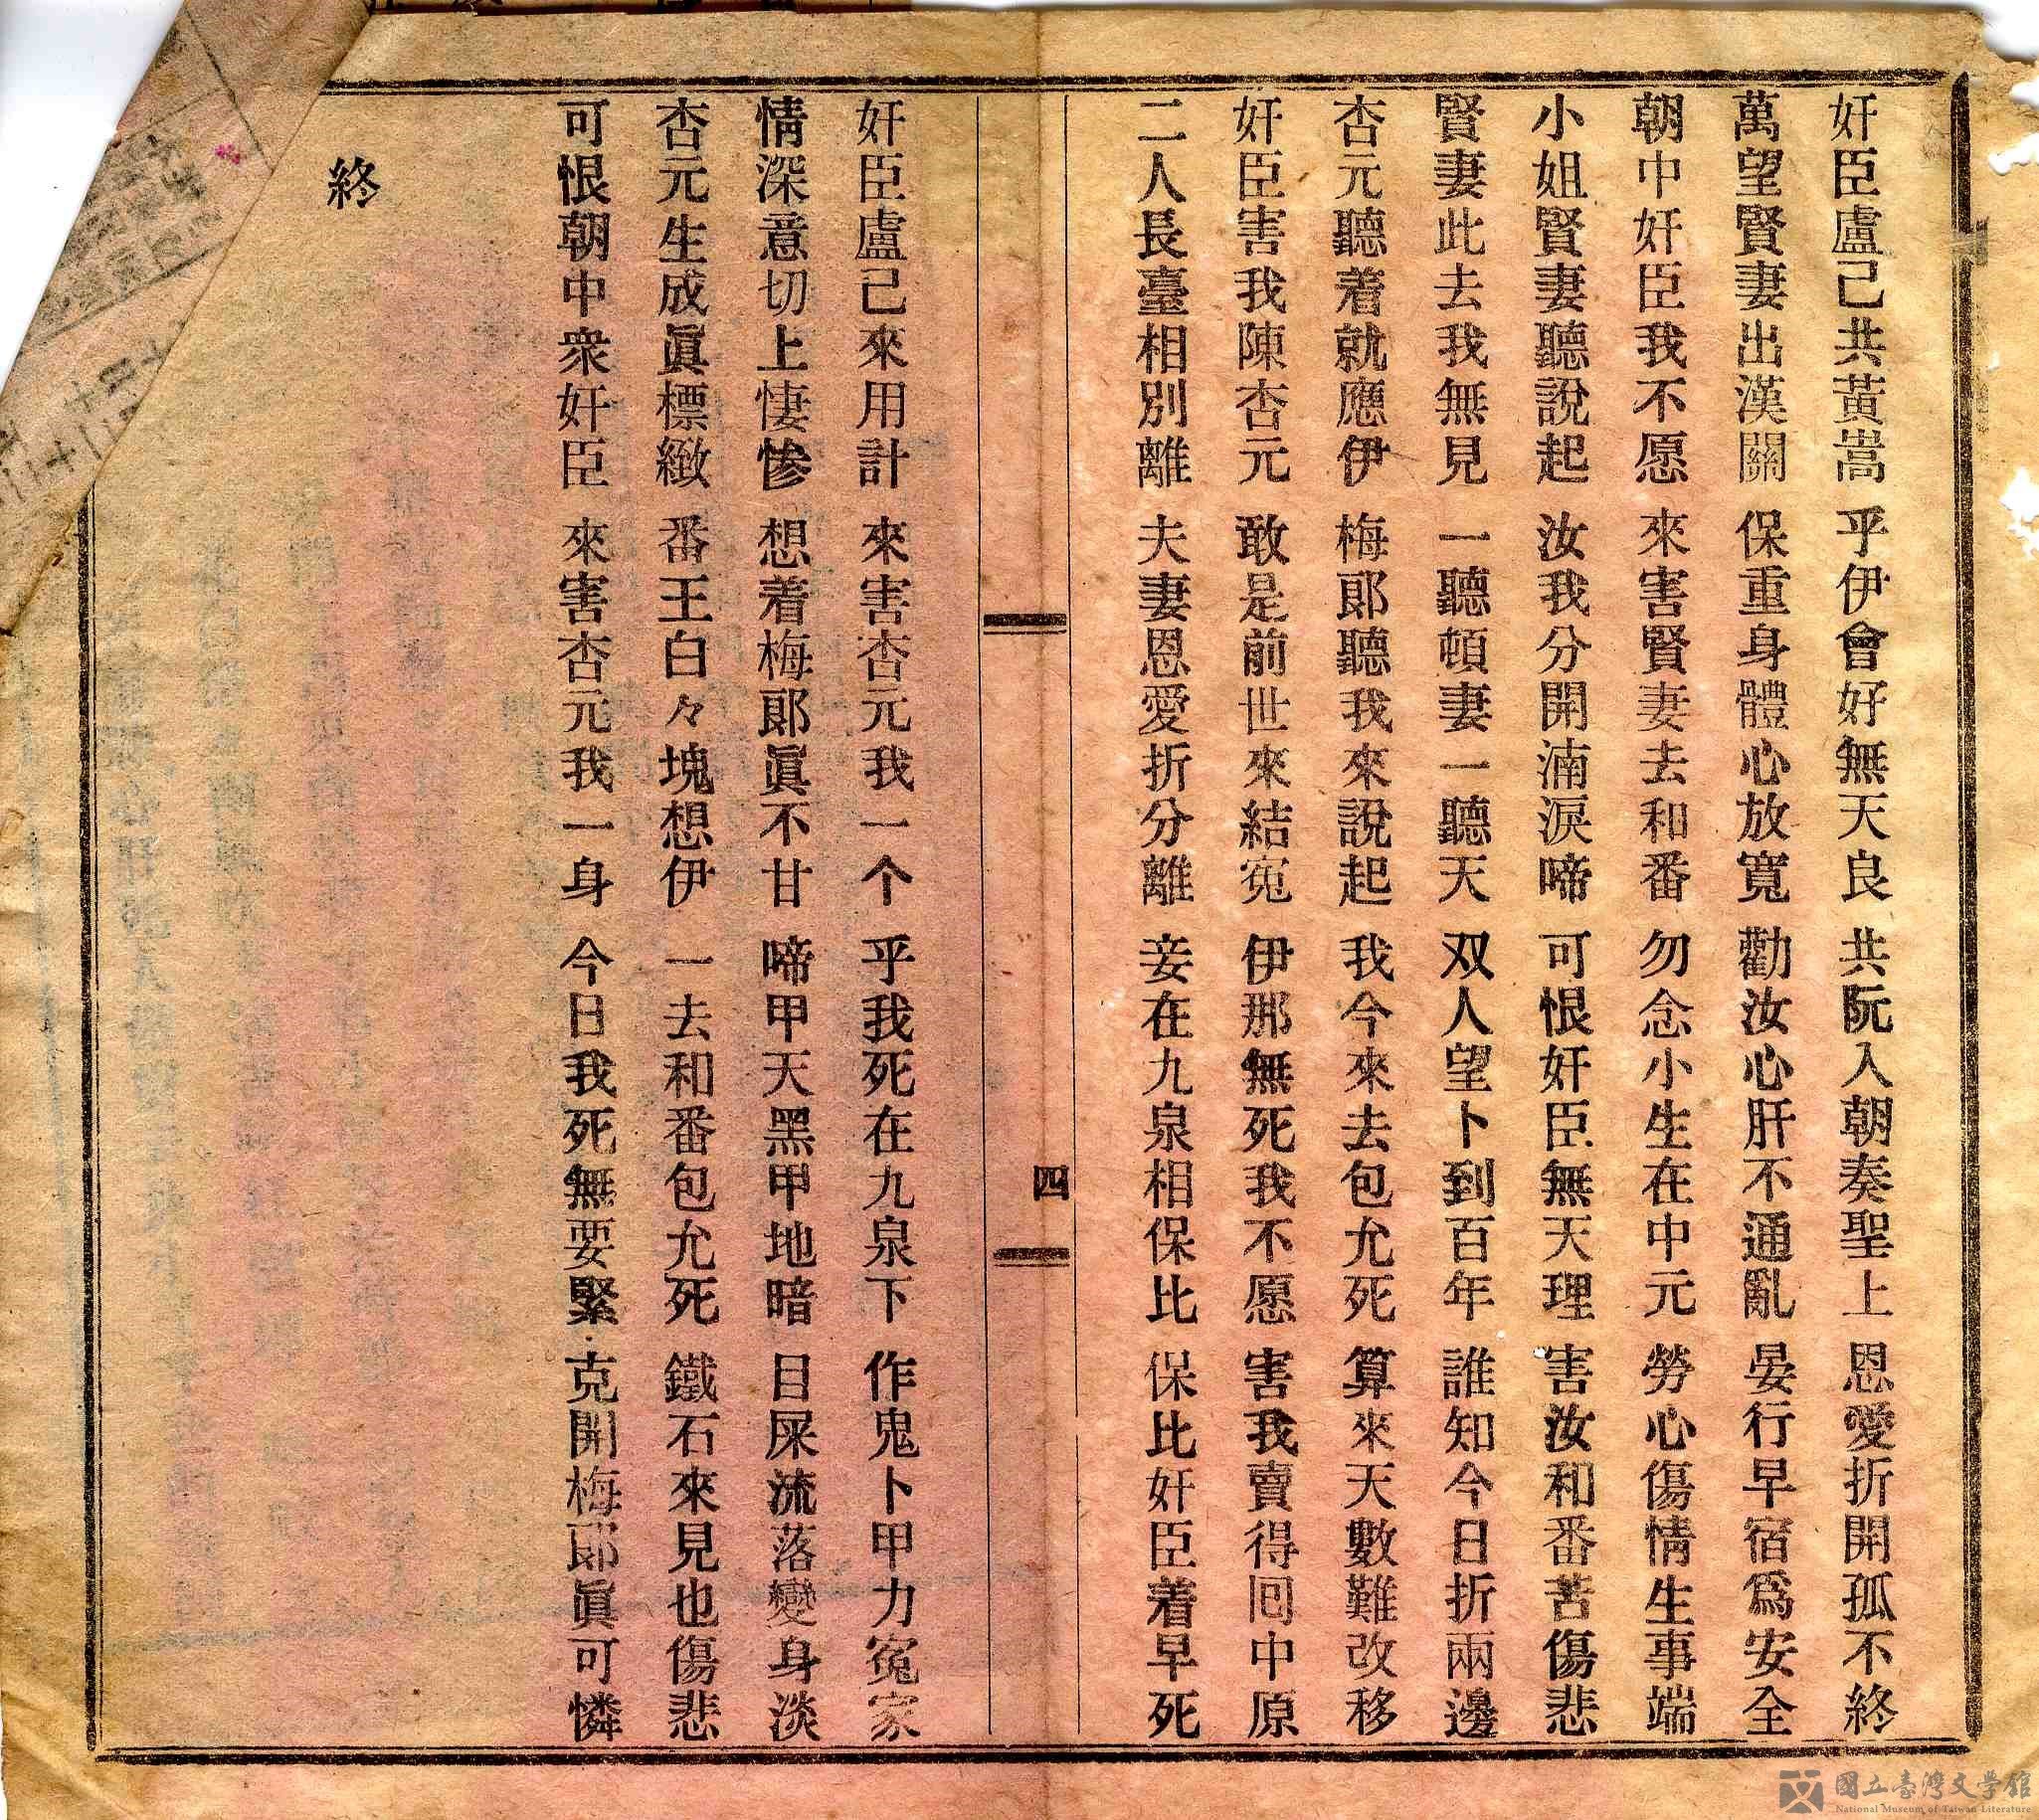 奸臣盧己共黃嵩 乎伊會好無天良 共阮入朝奏聖上 恩愛折開孤不終
萬望賢妻出漢關 保重身體心放寬 勸汝心肝不通亂 晏行早宿爲安全
朝中奸臣我不愿 來害賢妻去和番 勿念小生在中元 勞心傷情生事端
小姐賢妻聽說起 汝我分開湳淚啼 可恨奸臣無天理 害汝和番苦傷悲
賢妻此去我無見 一聽頓妻一聽天 双人望卜到百年 誰知今日折兩邊
杏元聽着就應伊 梅郞聽我來說起 我今來去包允死 算來天數難改移
奸臣害我陳杏元 敢是前世來結寃 伊那無死我不愿 害我賣得囘中原
二人長臺相別離 夫妻恩愛折分離 妾在九泉相保比 保比奸臣着早死
四
奸臣盧己來用計 來害杏元我一个 乎我死在九泉下 作鬼卜甲力寃家
情深意切上悽慘 想着梅郞眞不甘 啼甲天黑甲地暗 目屎流落變身淡
杏元生成眞標緻 番王白々塊想伊 一去和番包允死 鐵石來見也傷悲
可恨朝中衆奸臣 來害杏元我一身 今日我死無要緊 克開梅郞眞可憐
終
國立臺灣文學館
National Museum of Taiwan Literature